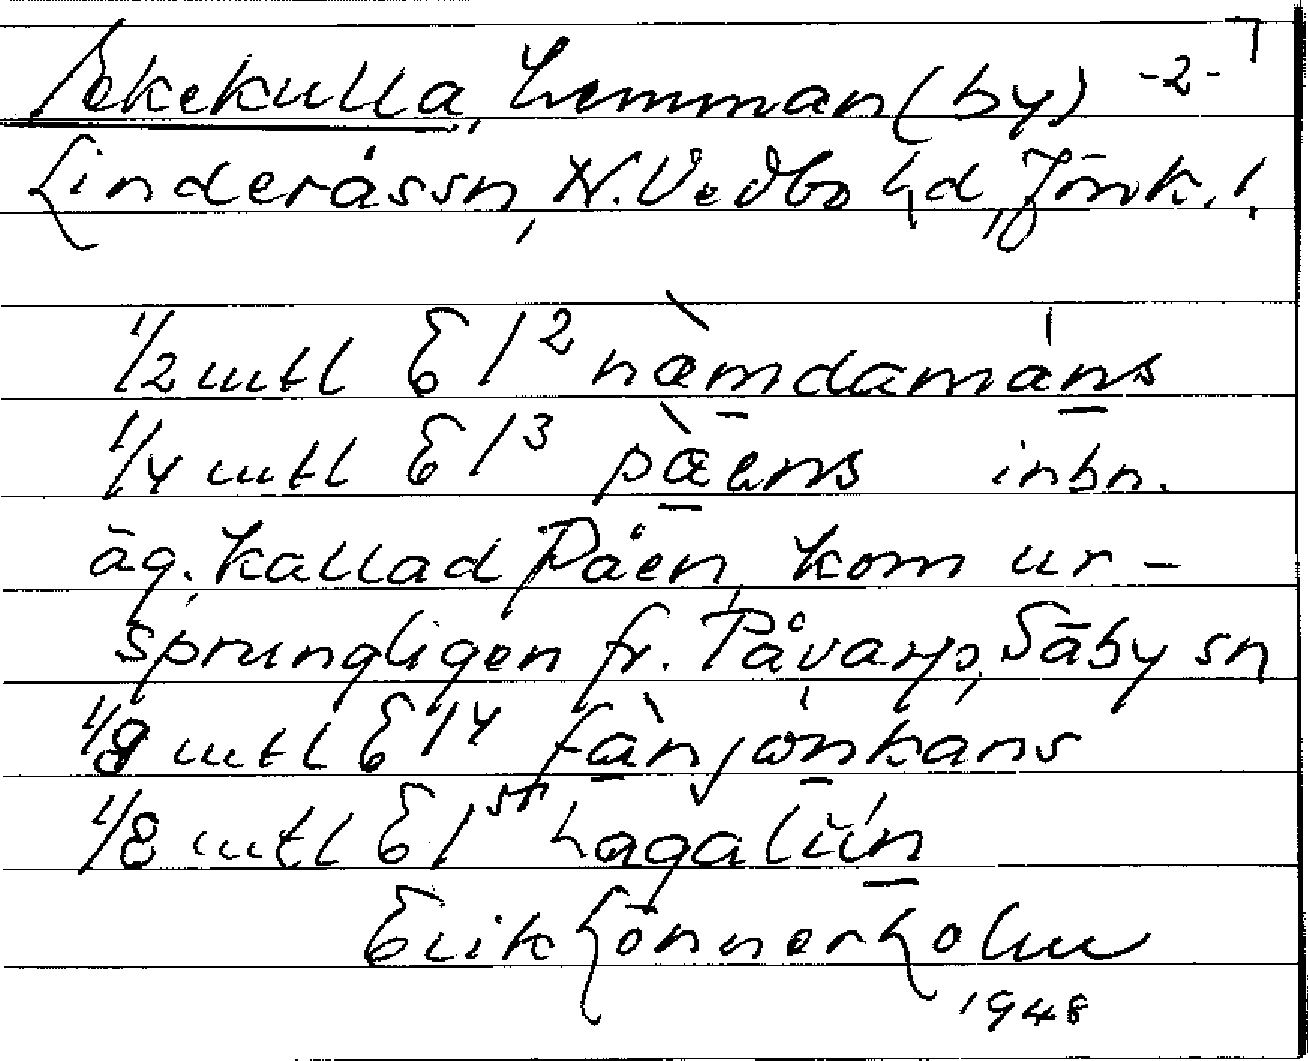 Ekekulla, hemman (by) -2-
Linderås sn, N. Vedbo hd, Jönk. l.
1/2 mtl E 1² næ̀mdamáns
1/4 mtl E 1³ pæ̀ens inbn.
äg. kallad Påen, kom ur-
sprungligen fr. Påvarp, Säby sn
1/8 mtl E 1⁴ fànjónkans
1/8 mtl E 1⁵ hagalún
Erik Lönnerholm
1948